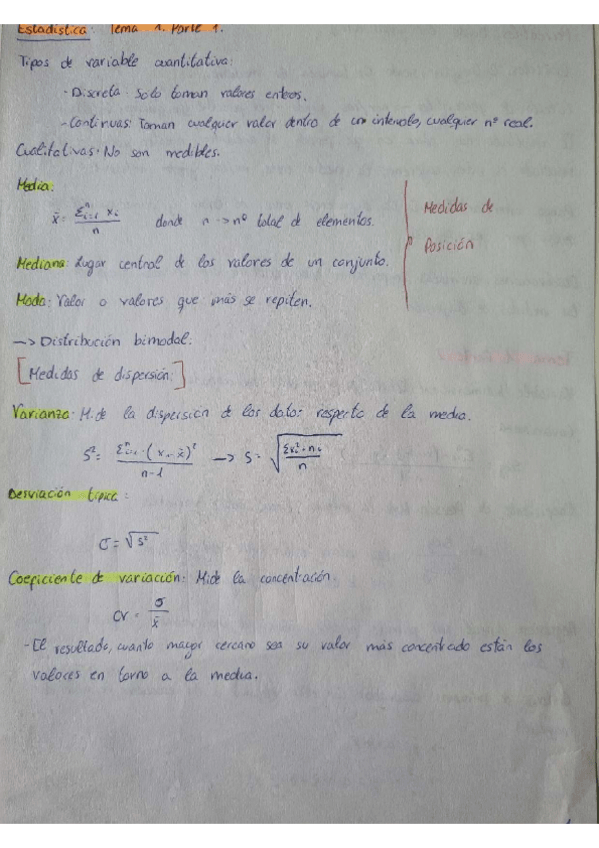 Estadística: Tema 1. Parte 1.
Tipos de variable cuantitativa:
- Discreta: Solo toman valores enteros.
- Continuas: Toman cualquier valor dentro de un intervalo, cualquier nº real.
Cualitativas: No son medibles.
Media:
x̄ = Σⁿᵢ₌₁ xᵢ / n donde n -> nº total de elementos.
Medidas de
Posición
Mediana: Lugar central de los valores de un conjunto.
Moda: Valor o valores que más se repiten.
-> Distribución bimodal.
[Medidas de dispersión:]
Varianza: M. de la dispersión de los datos respecto de la media.
S² = Σⁿᵢ₌₁ · (xᵢ - x̄)² / n-1 -> S =
Desviación típica:
σ = √S²
Coeficiente de variación: Mide la concentración.
CV = σ / x̄
- El resultado, cuanto mayor cercano sea su valor más concentrado están los
valores en torno a la media.